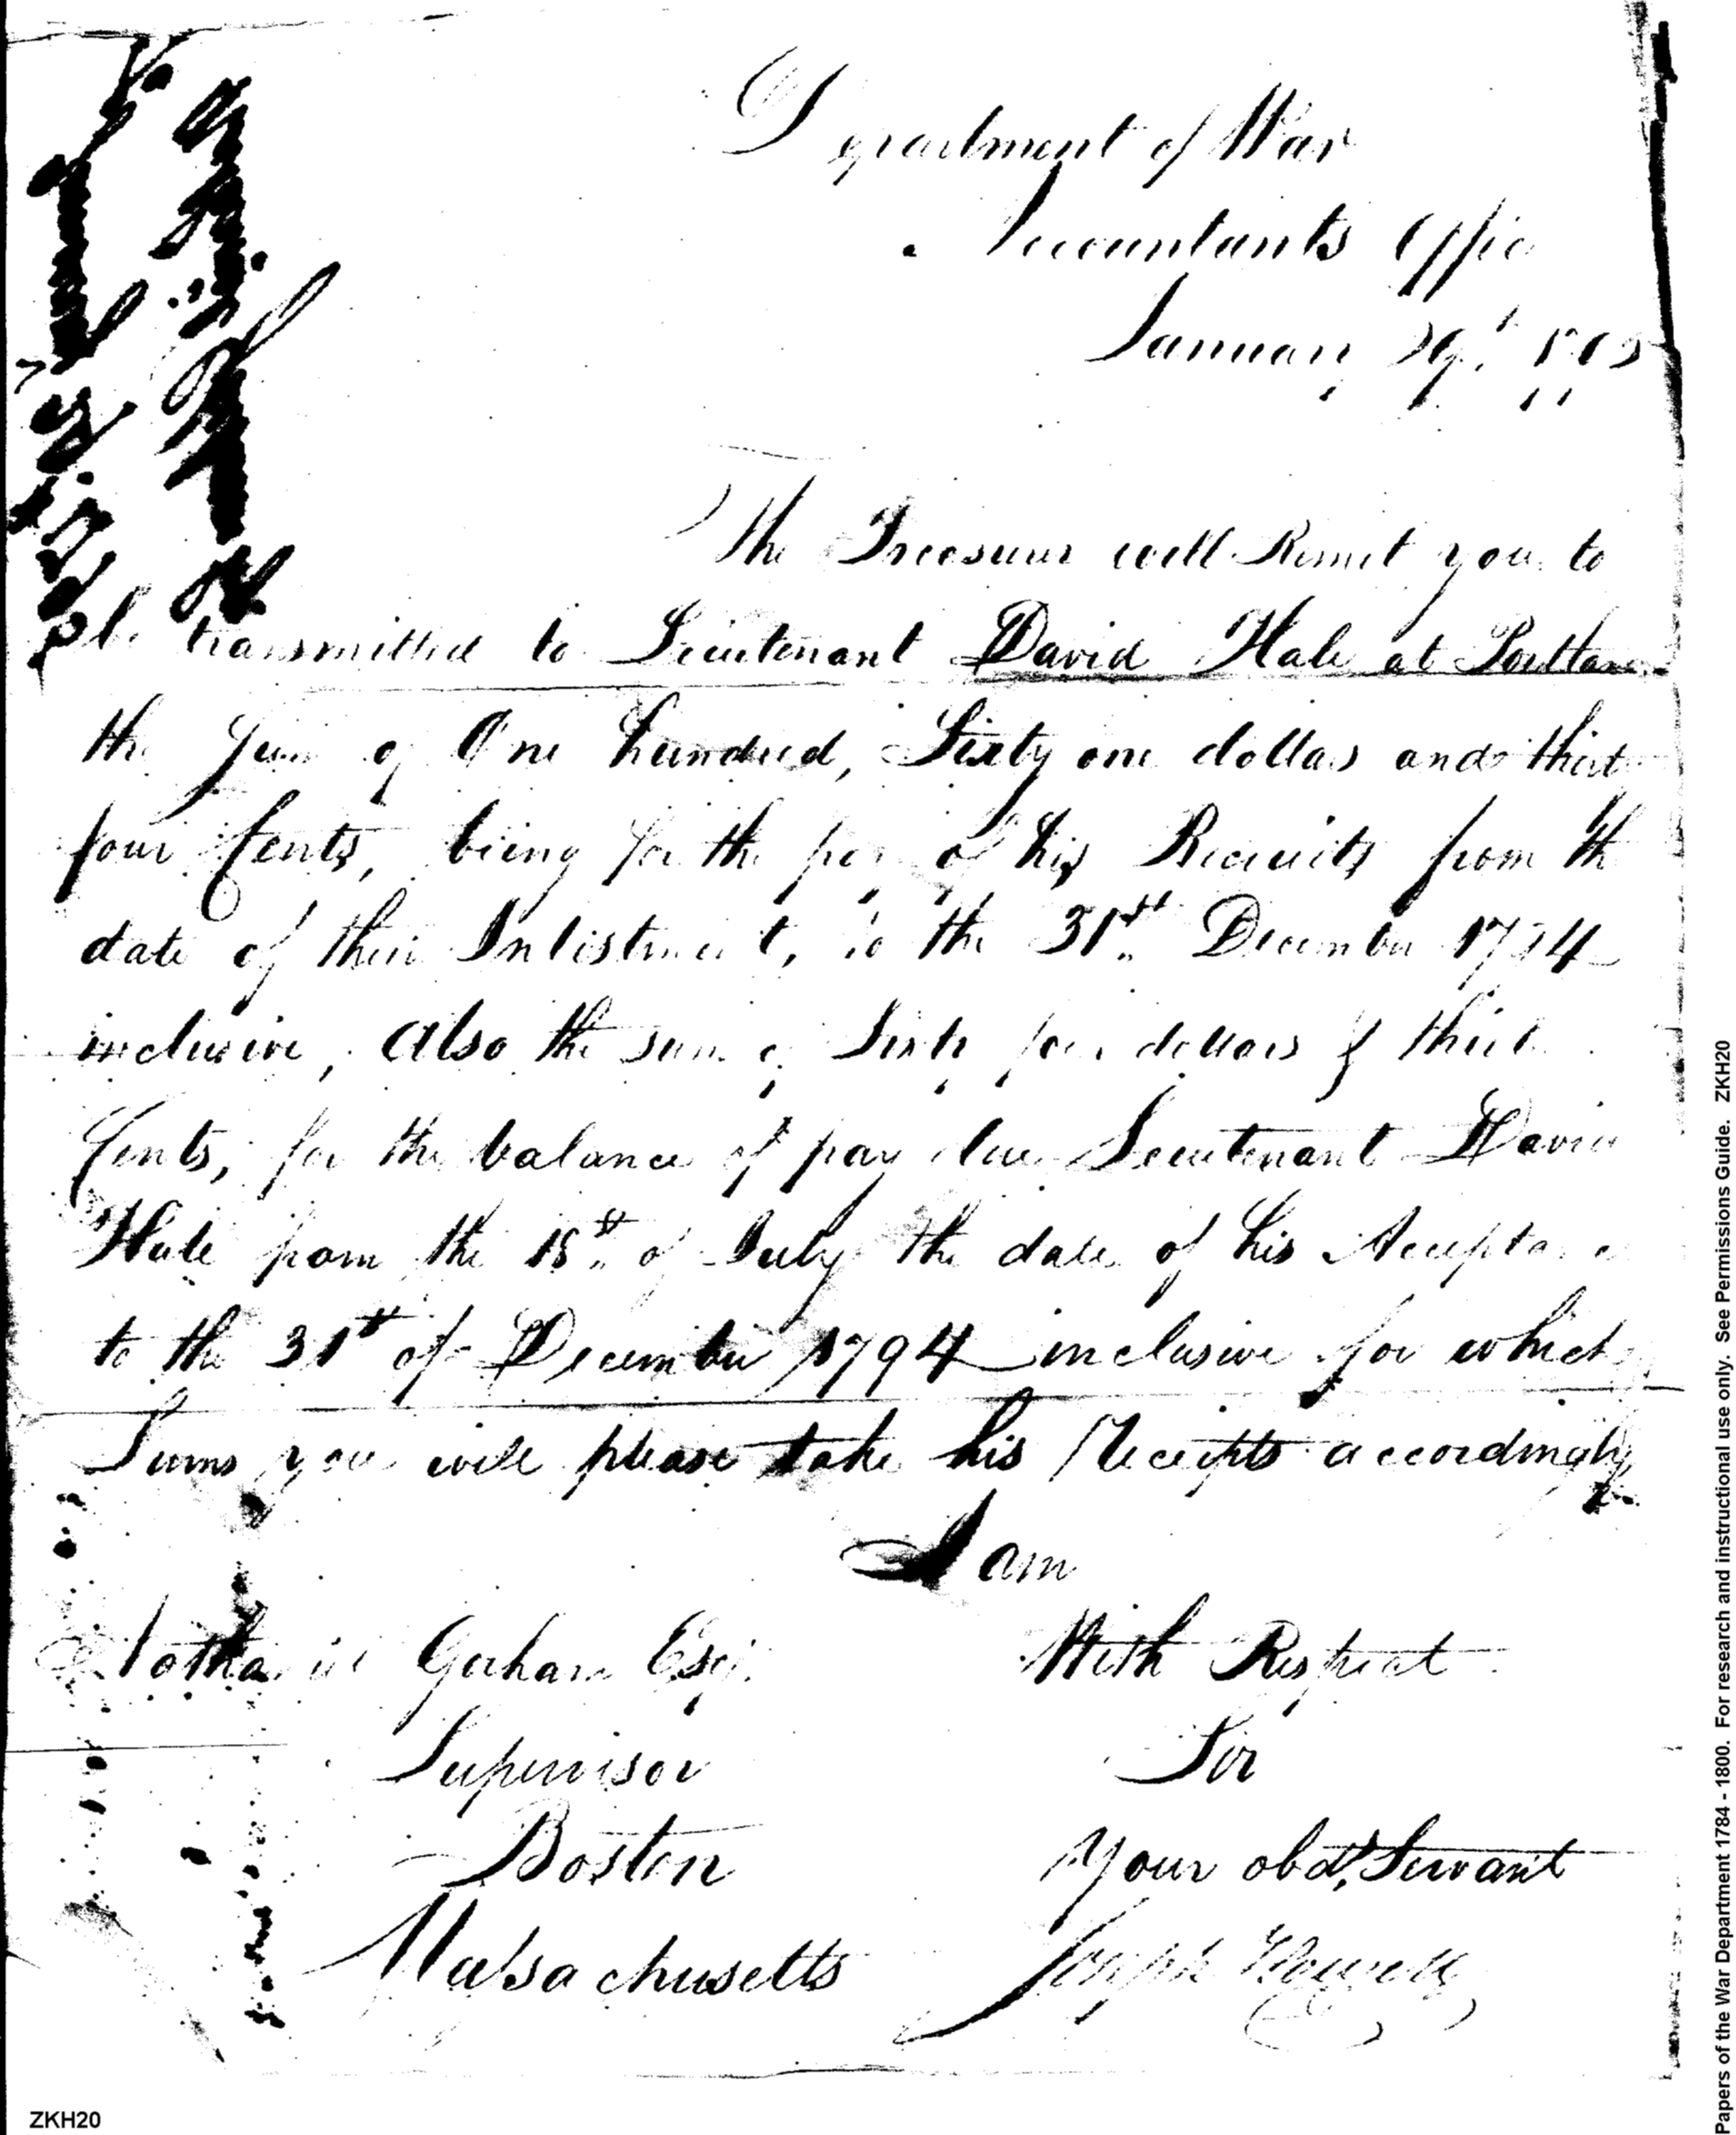 Department of War
Accountants Office
January 29th 1795
The Treasurer will Remit you to
be transmitted to Lieutenant David Hale at Portland
the Sum of One hundred, Sixty one dollars and thirty
four Cents, being for the pay of his Recruits from the
date of their Inlistment, to the 31st December 1794
inclusive, Also the sum of Sixty four dollars & thirty
Cents, for the balance of pay due Lieutenant David
Hale from the 18th of July the date of his Acceptance
to the 31st of December 1794 inclusive for which
Sums you will please take his Receipts accordingly
I am
With Respect
Sir
Your obdt. Servant
Joseph Howell
Nathaniel Gorham Esqr.
Supervisor
Boston
Massachusetts
ZKH20
Papers of the War Department 1784 - 1800. For research and instructional use only. See Permissions Guide. ZKH20